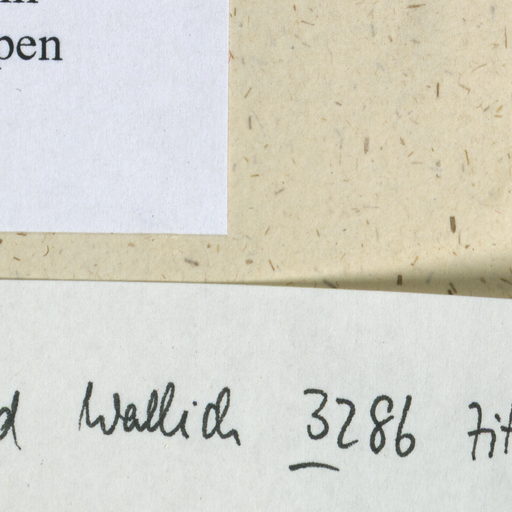 pen
Wallich 3286 zit